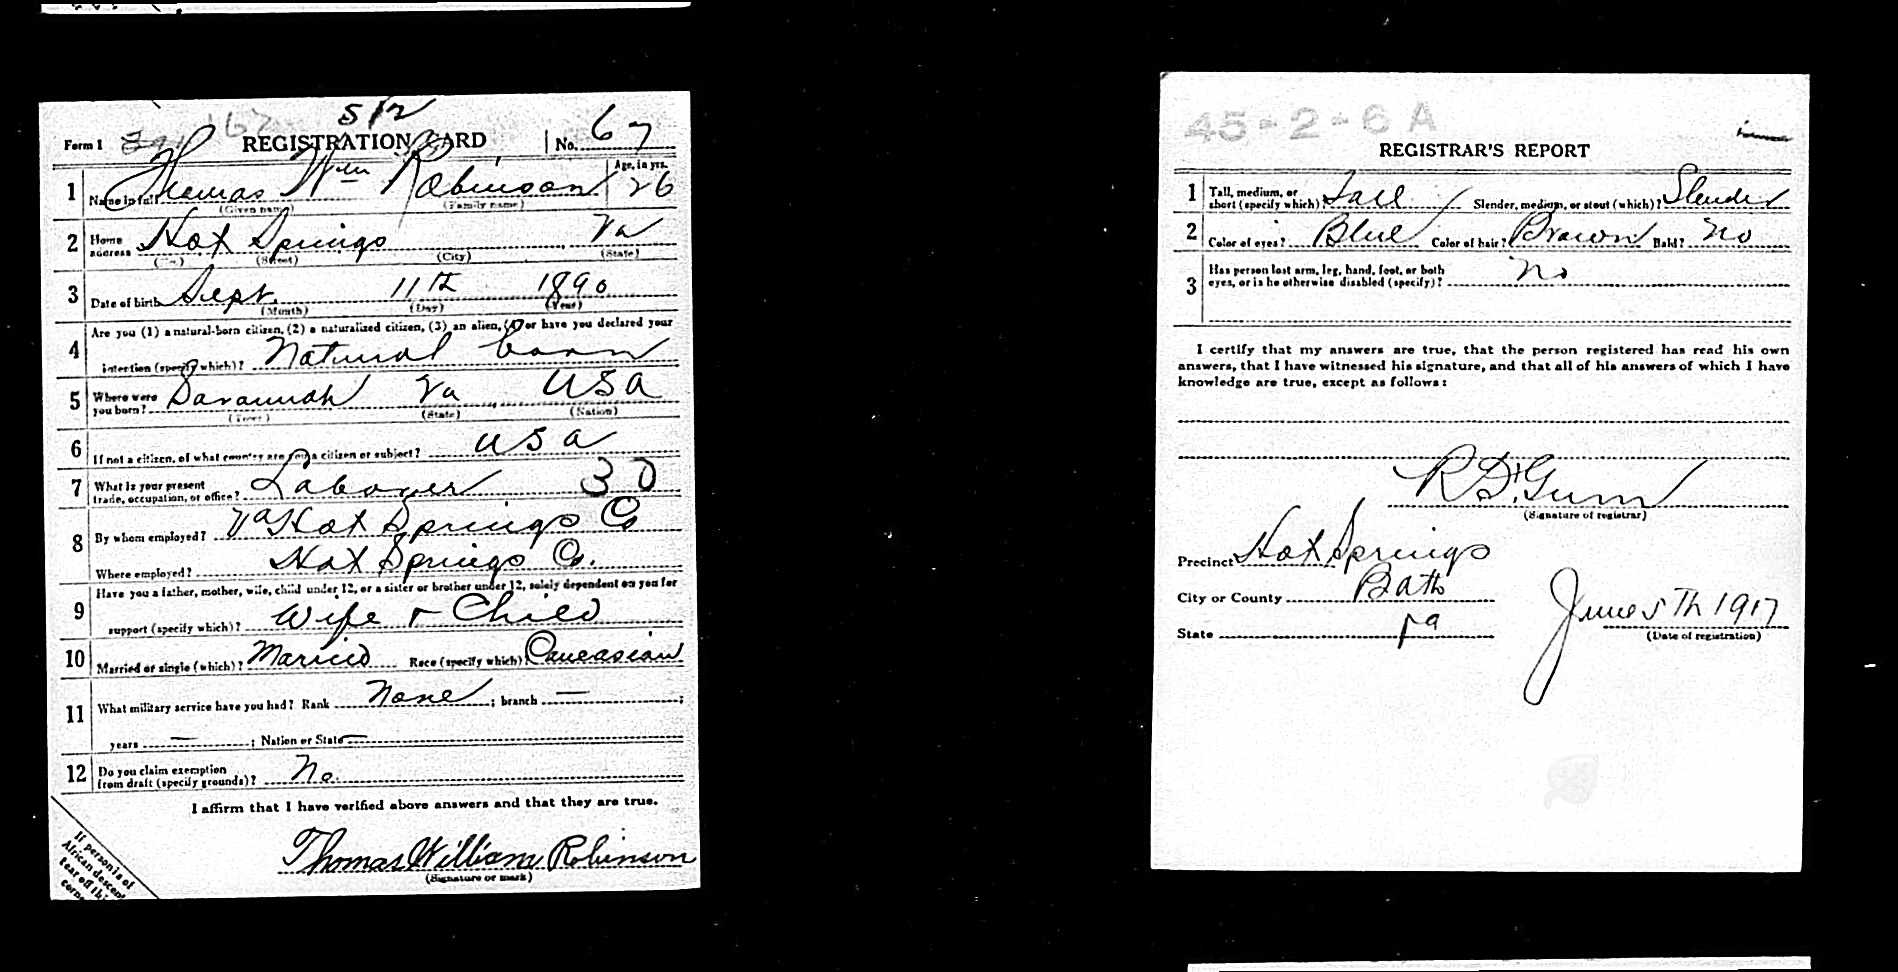 512
Form 1 REGISTRATION CARD No. 67
1 Name in full Thomas Wm Robinson Age, in yrs. 26
(Given name) (Family name)
2 Home address Hot Springs Va
(No.) (Street) (City) (State)
3 Date of birth Sept. 11th 1890
(Month) (Day) (Year)
4 Are you (1) a natural-born citizen, (2) a naturalized citizen, (3) an alien, (4) or have you declared your
intention (specify which)? Natural born
5 Where were you born? Savannah Va USA
(Town) (State) (Nation)
6 If not a citizen, of what country are you a citizen or subject? USA
7 What is your present trade, occupation, or office? Laborer 30
8 By whom employed? Va Hot Springs Co
Where employed? Hot Springs Co.
9 Have you a father, mother, wife, child under 12, or a sister or brother under 12, solely dependent on you for
support (specify which)? Wife + Child
10 Married or single (which)? Married Race (specify which) Caucasian
11 What military service have you had? Rank None ; branch — ;
years — ; Nation or State —
12 Do you claim exemption from draft (specify grounds)? No.
I affirm that I have verified above answers and that they are true.
Thomas William Robinson
(Signature or mark)
If person is of
African descent
tear off this
corner
45-2-6 A
REGISTRAR'S REPORT
1 Tall, medium, or short (specify which) Tall Slender, medium, or stout (which)? Slender
2 Color of eyes? Blue Color of hair? Brown Bald? No
3 Has person lost arm, leg, hand, foot, or both
eyes, or is he otherwise disabled (specify)? No
I certify that my answers are true, that the person registered has read his own
answers, that I have witnessed his signature, and that all of his answers of which I have
knowledge are true, except as follows:
R D. Gum
(Signature of registrar)
Precinct Hot Springs
City or County Bath
State Va
June 5th 1917
(Date of registration)